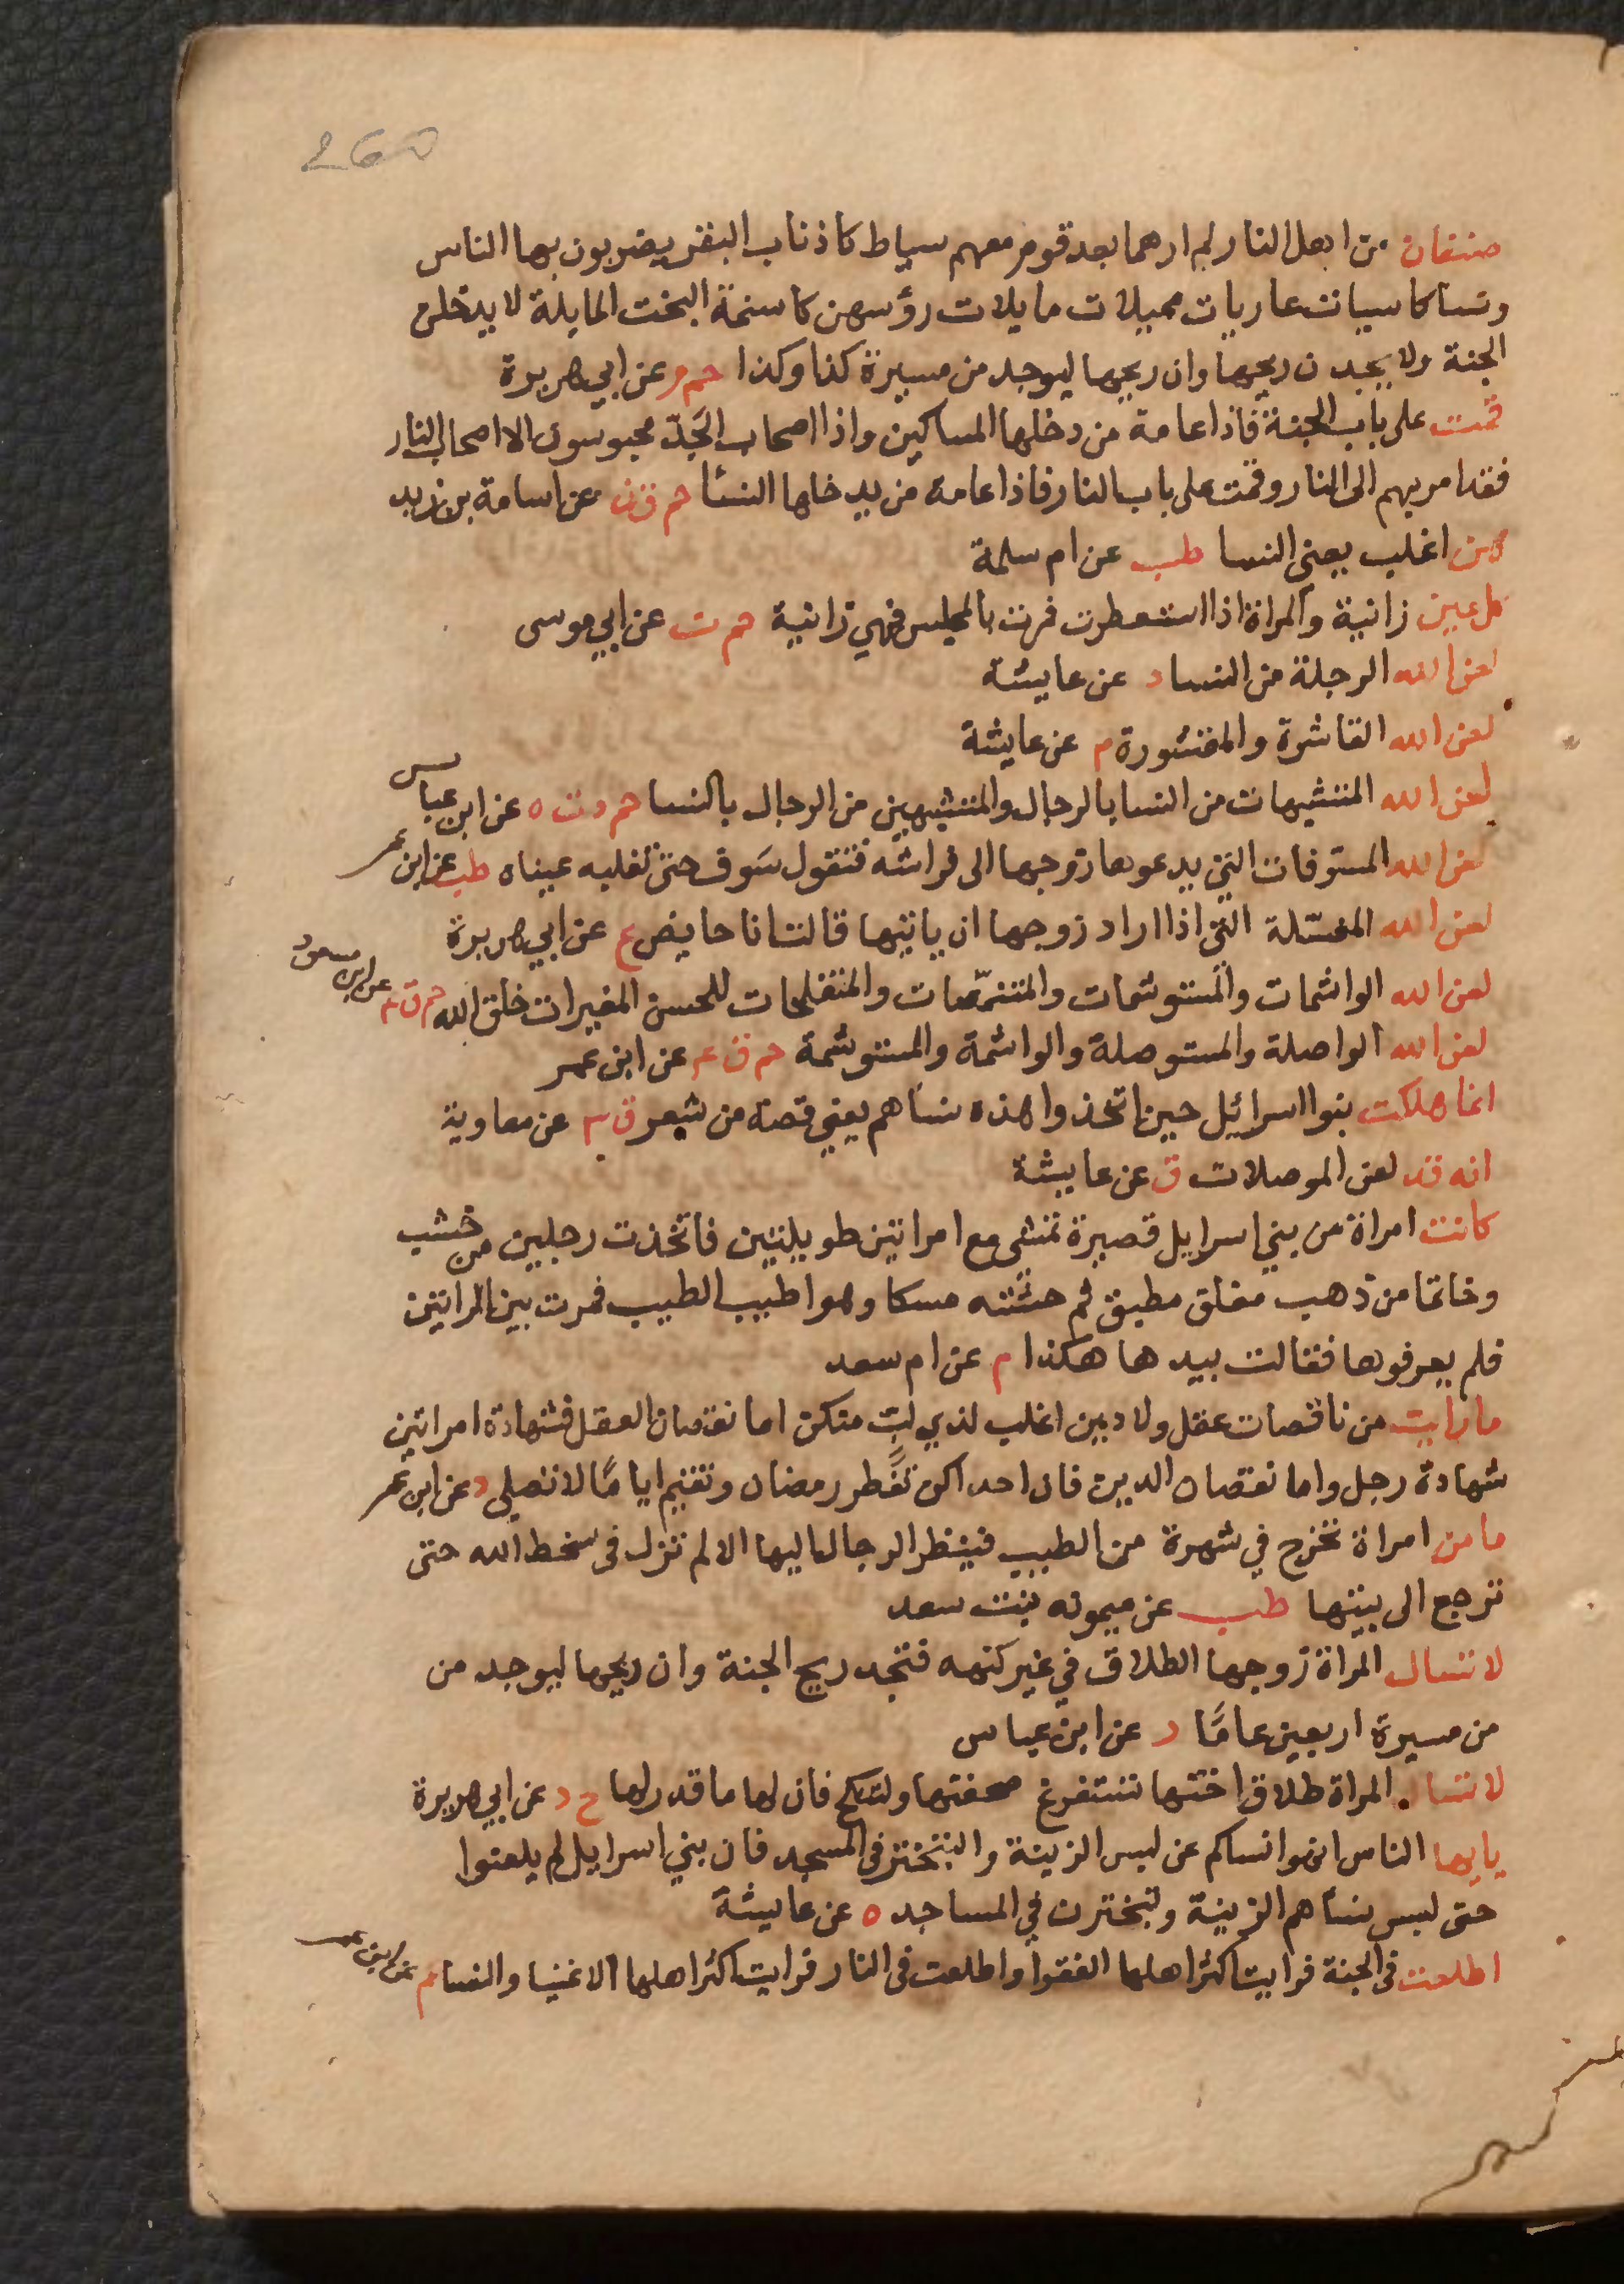 260
صنفان من اهل النار لم ارهما بعد قوم معهم سياط كاذناب البقر يضربون بها الناس
ونسا كاسيات عاريات مميلات مايلات رؤسهن كاسنمة البخت المايلة لا يدخلن
الجنة ولا يجدن ريحها وان ريحها ليوجد من مسيرة كذا وكذا حم م عن ابي هريرة
قمت على باب الجنة فاذا عامة من دخلها المساكين واذا اصحاب الجَدّ محبوسون الا اصحاب النار
فقد امر بهم الى النار وقمت على باب النار فاذا عامة من يدخلها النسا حم ق ن عن اسامة بن زيد
هن اغلب يعنى النسا طب عن ام سلمة
كل عين زانية والمراة اذا استعطرت فمرت بالمجلس فهي زانية حم ت عن ابي موسى
لعن الله الرجلة من النسا د عن عايشة
لعن الله القاشرة والمقشورة م عن عايشة
لعن الله المتشبهات من النسا بالرجال والمتشبهين من الرجال بالنسا حم د ت ه عن ابن عباس
لعن الله المسوفات التي يدعوها زوجها الى فراشه فتقول سَوف حتى تغلبه عيناه طب عن ابن عمر
لعن الله المغسّلة التي اذا اراد زوجها ان ياتيها قالت انا حايض ع عن ابي هريرة
لعن الله الواشمات والمستوشمات والمتنمّصات والمتفلجات للحسن المغيرات خلق الله حم ق ٤ عن ابن مسعود
لعن الله الواصلة والمستوصلة والواشمة والمستوشمة حم ق ٤ عن ابن عمر
انما هلكت بنوا اسرائيل حين اتخذوا هذه نساهم يعني قصة من شعر ق ٣ عن معاوية
انه قد لعن الموصلات ق عن عايشة
كانت امراة من بني اسرايل قصيرة تمشى مع امراتين طويلتين فاتخذت رجلين من خشب
وخاتما من ذهب مغلق مطبق ثم حشته مسكا وهو اطيب الطيب فمرت بين المراتين
فلم يعرفوها فقالت بيدها هكذا م عن ام سعد
ما رايت من ناقصات عقل ولا دين اغلب لذي لبّ منكن اما نقصان العقل فشهادة امراتين
شهادة رجل واما نقصان الدين فان احداكن تفطر رمضان وتقيم ايامًا لا تصلى د عن ابن عمر
ما من امراة تخرج في شهرة من الطيب فينظر الرجال اليها الا لم تزل فى سخط الله حتى
ترجع الى بيتها طب عن ميمونه بنت سعد
لا تسال المراة زوجها الطلاق في غير كنهه فتجد ريح الجنة وان ريحها ليوجد من
من مسيرة اربعين عامًا د عن ابن عباس
لا تسال المراة طلاق اختها تستفرغ صحفتها ولتنكح فان لها ما قدر لها خ د عن ابي هريرة
يايها الناس انهوا نساكم عن لبس الزينة والتبختر فى المسجد فان بني اسرايل لم يلعنوا
حتى لبس نساهم الزينة وتبخترن في المساجد ه عن عايشة
اطلعت فى الجنة فرايت اكثر اهلها الفقرا واطلعت فى النار فرايت اكثر اهلها الاغنيا والنسا م عن ابن عمر